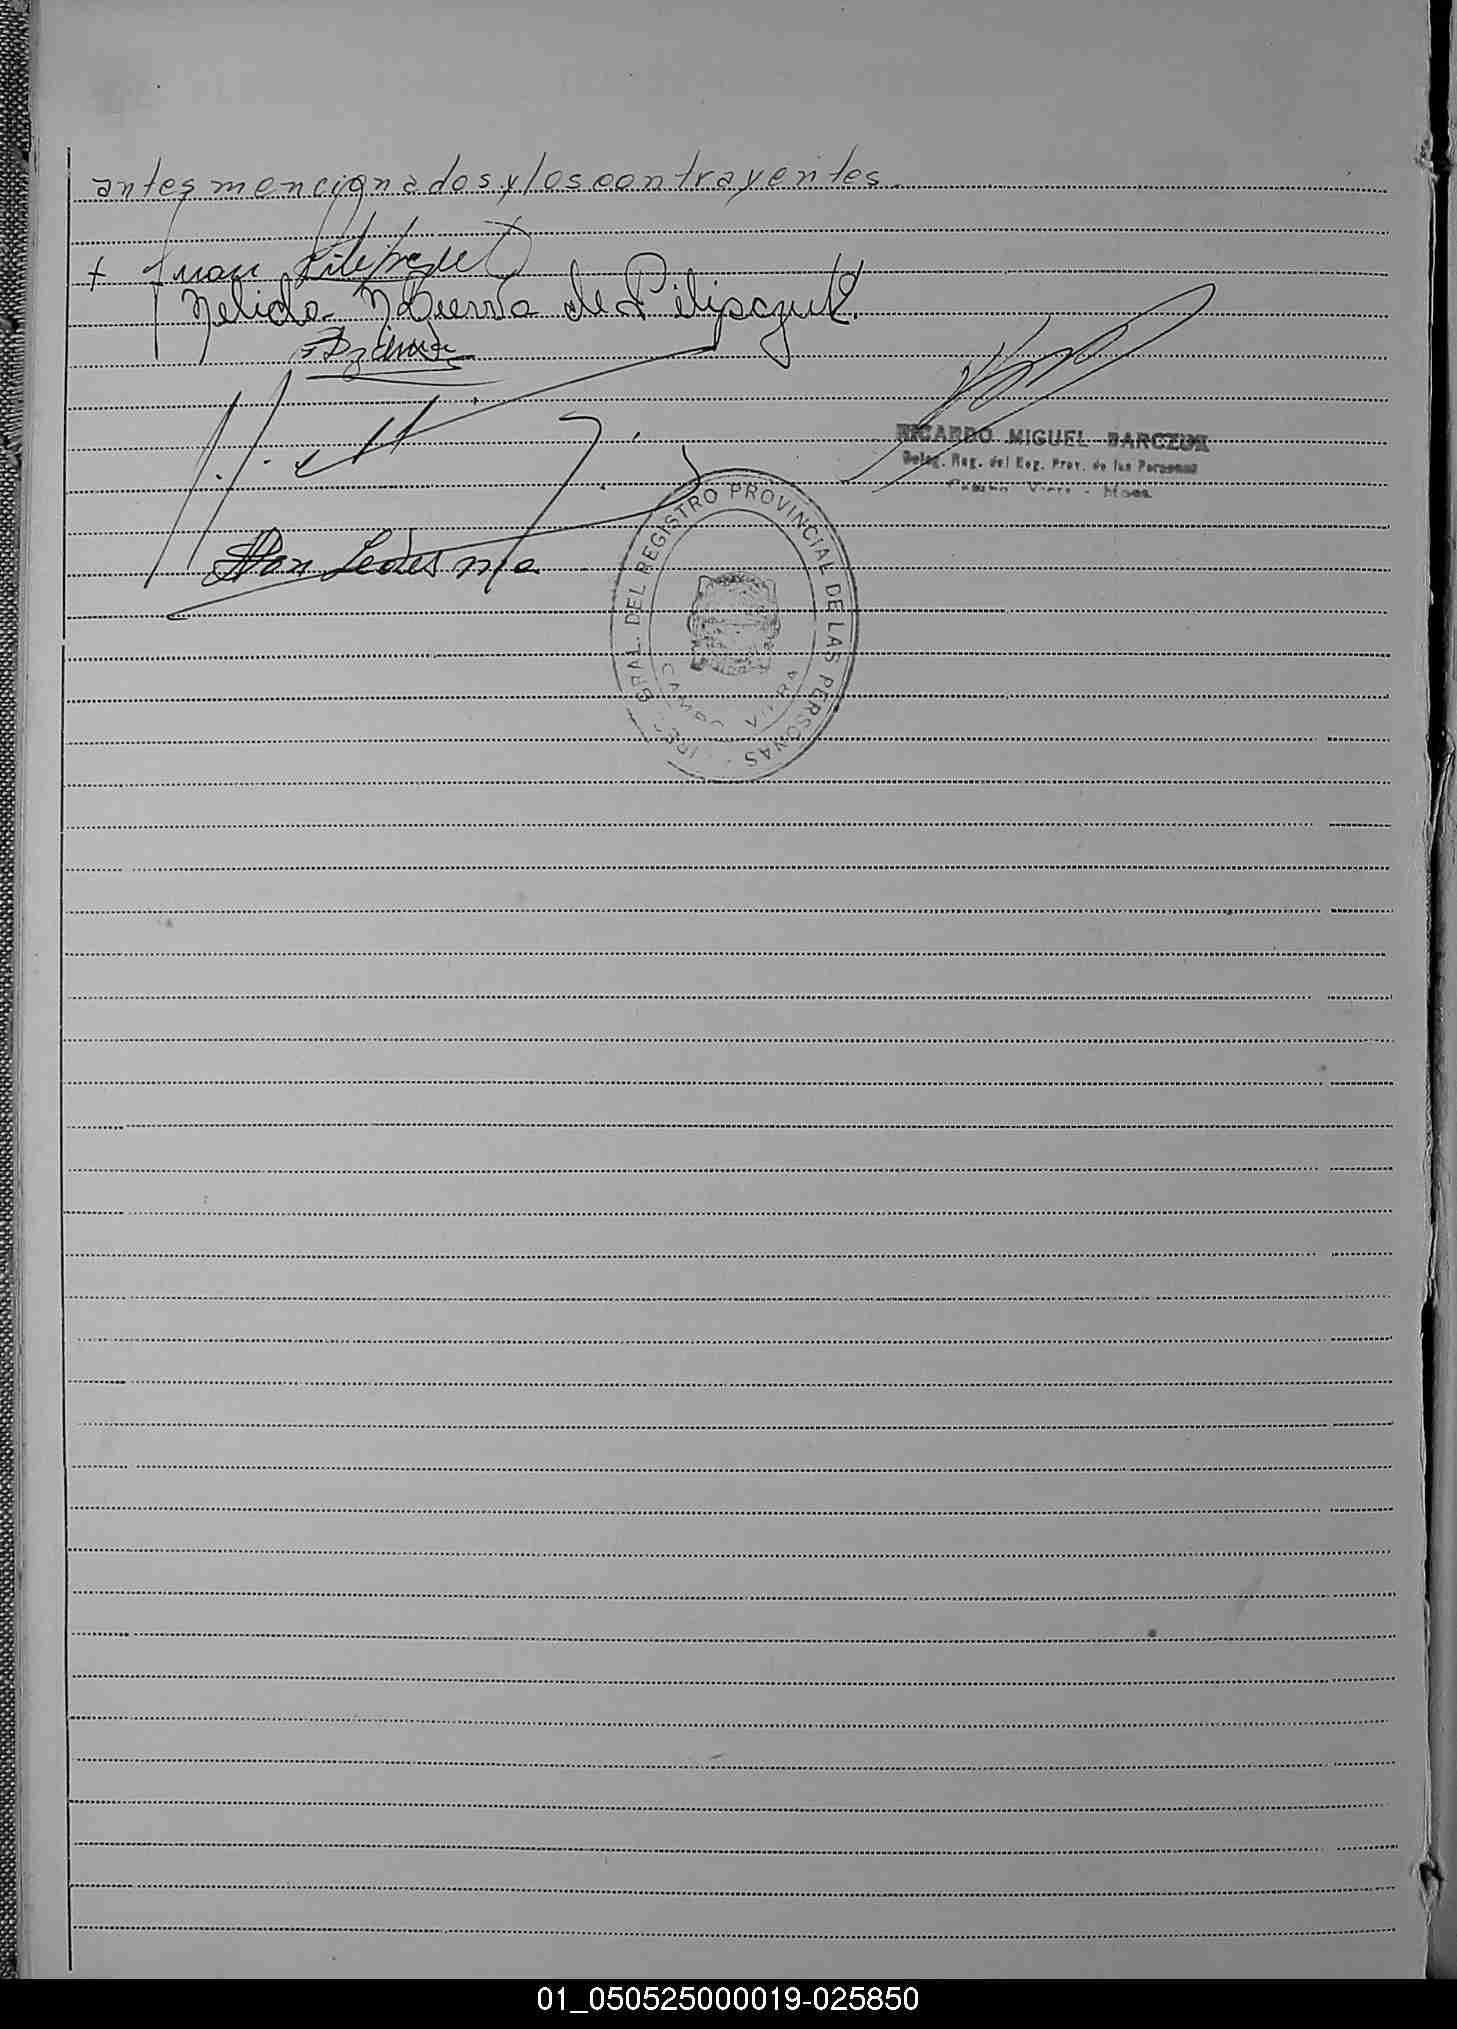 antes mencionados y los contrayentes.
+ Juan
Nelida de Pilipczuk.
RICARDO MIGUEL BARCZUK
Deleg. Reg. del Reg. Prov. de las Personas
Campo Viera - Mnes.
Ledesma
GRAL. DEL REGISTRO PROVINCIAL DE LAS PERSONAS
CAMPO VIERA
01_050525000019-025850